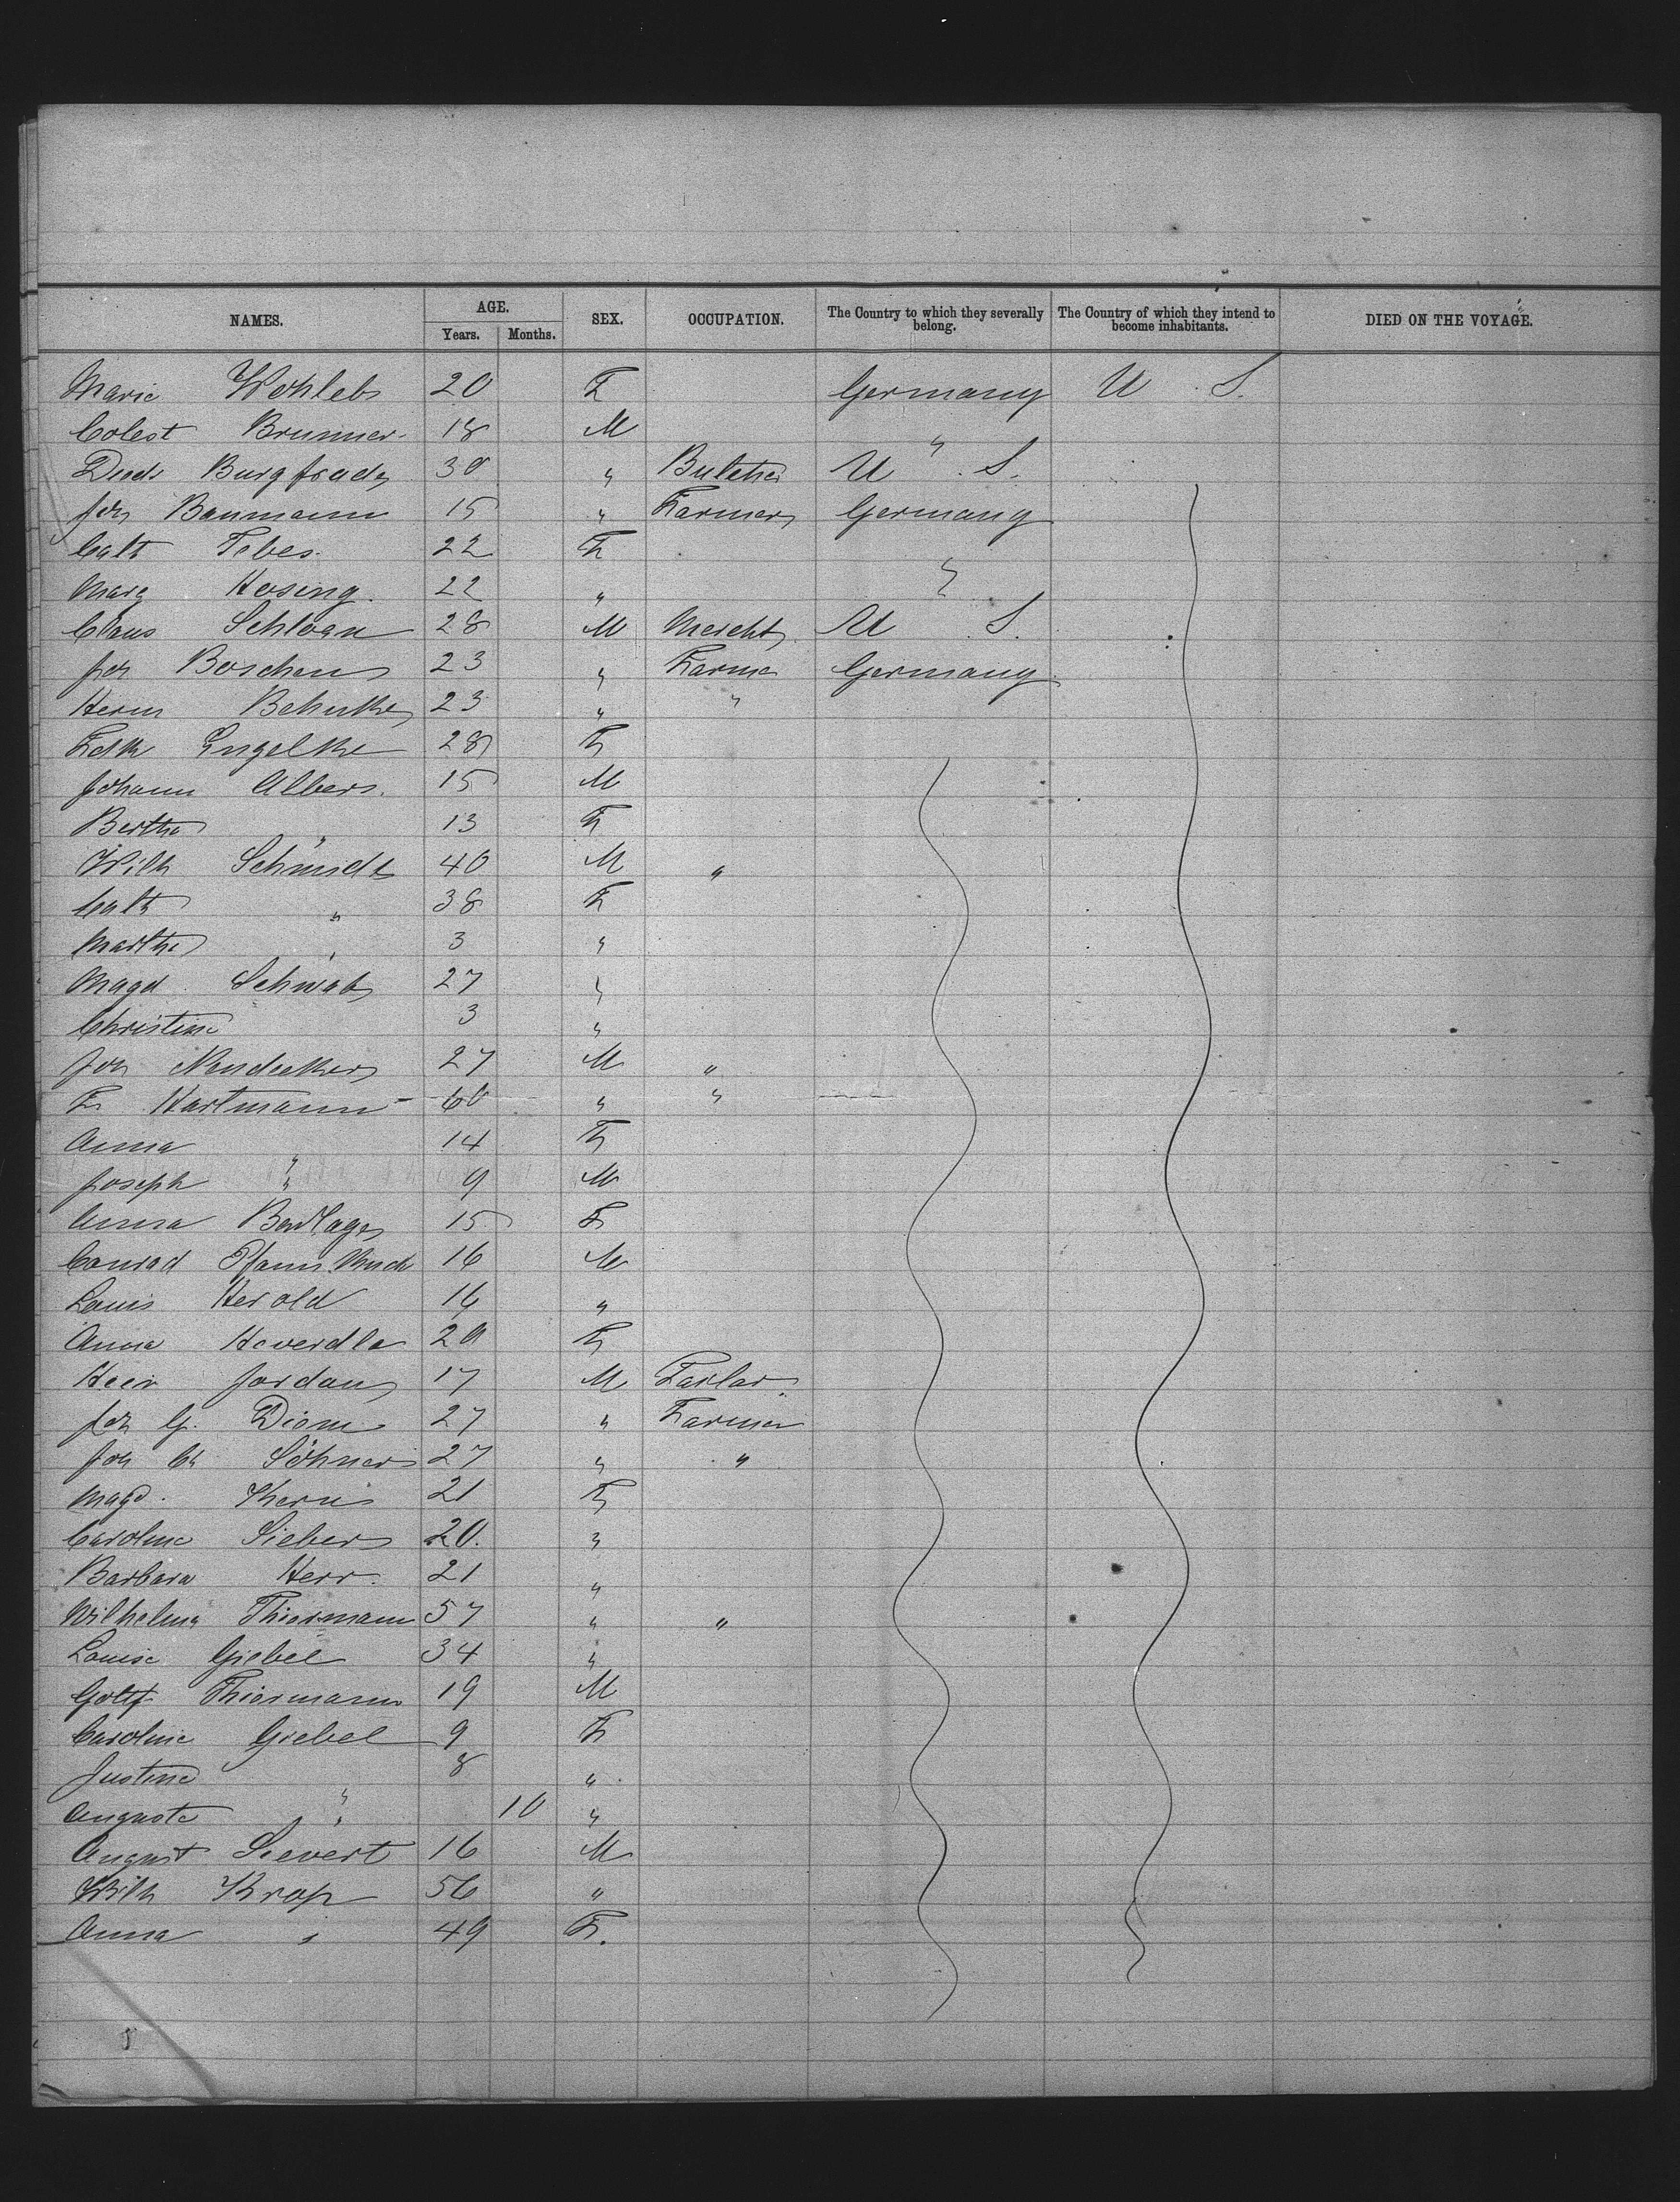 NAMES. AGE. Years. Months. SEX. OCCUPATION. The Country to which they severally belong. The Country of which they intend to become inhabitants. DIED ON THE VOYAGE.
Marie Wohleb 20 F Germany U. S.
Colest Brunner 18 M "
30 " Butcher U. S.
Joh Baumann 15 " Farmer Germany
Cath Tebes 22 F
Marg Hosing 22 " "
Claus Schloen 28 M Mercht U. S.
Joh Boschen 23 " Farmer Germany
Herm Behnke 23 " "
Engelke 28 F
Johann Albers 15 M
Bertha " 13 F
Wilh Schmidt 40 M "
Cath " 38 F
Martha " 3 "
Magd. Schwab 27 "
Christine 3 "
Joh 27 M "
F. Hartmann 60 " "
Anna " 14 F
Joseph " 9 M
Anna Berlage 15 F
Conrad 16 M
Louis Herold 16 "
Anna 20 F
Jordan 17 M Tailor
Joh G. Diem 27 " Farmer
Joh Ch Söhner 27 " "
Magd. Kern 21 F
Caroline Sieber 20 "
Barbara Herr 21 "
Wilhelma Thiermann 57 " "
Louise Giebel 34 "
Gottf Thiermann 19 M
Caroline Giebel 9 F
Justine " 8 "
Auguste " 10 "
August Sievert 16 M
Wilh Krop 56 "
Anna " 49 F.